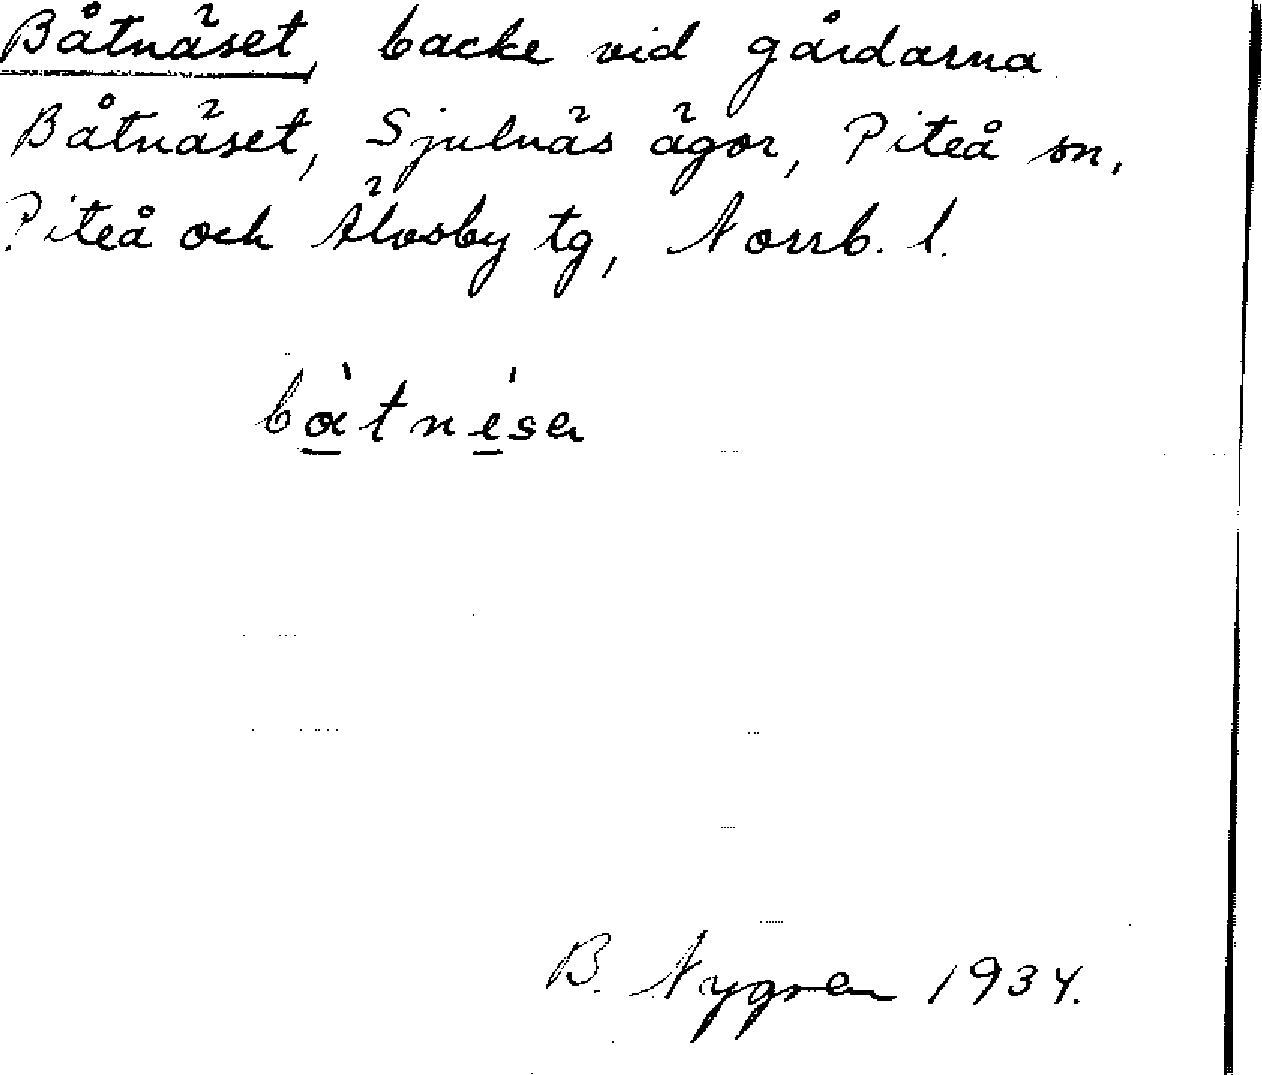 Båtnäset, backe vid gårdarna
Båtnäset, Sjulnäs ägor, Piteå sn,
Piteå och Älvsby tg, Norrb. l.
B. Nygren 1934.